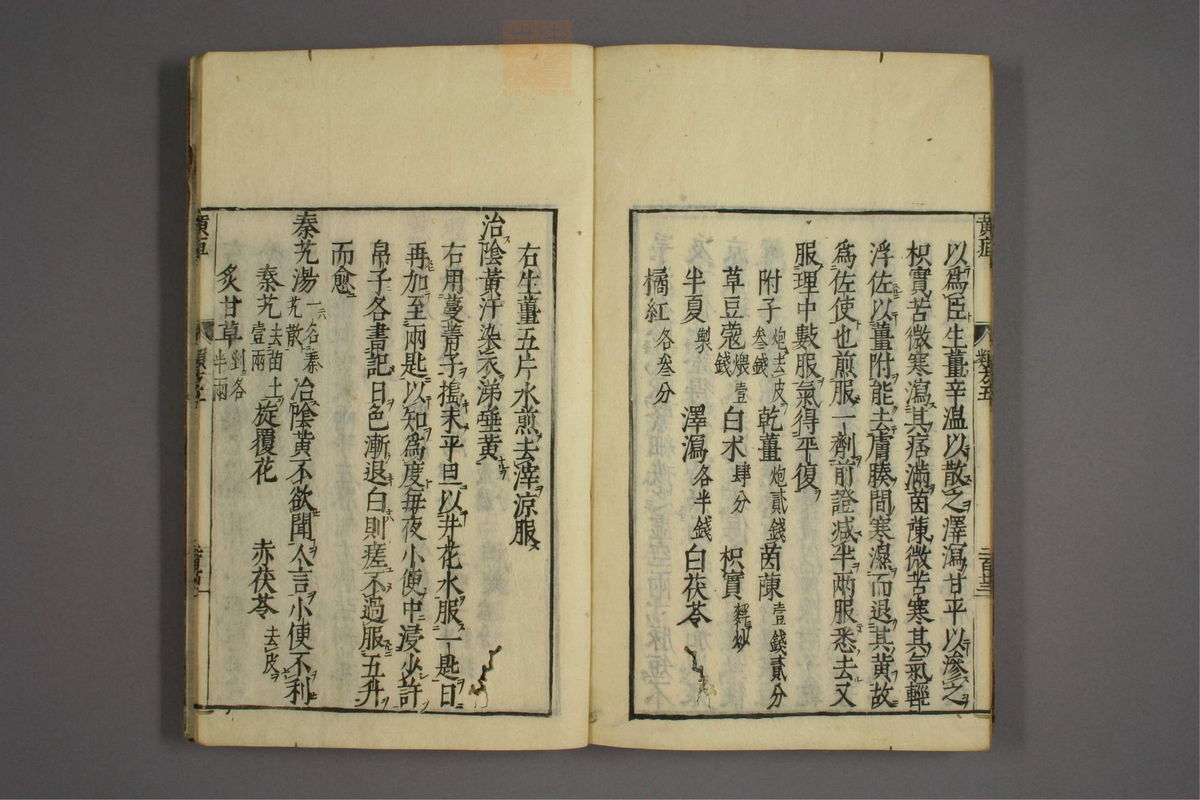 以爲臣生薑辛温以散之澤瀉甘平以滲之
枳實苦微寒瀉其痞滿茵蔯微苦寒其氣輕
浮佐以薑附能去膚腠間寒濕而退其黃故
爲佐使也煎服一劑前證减半兩服悉去又
服理中數服氣得平復
附子炮去皮叁錢 乾薑炮貳錢 茵蔯壹錢貳分
草豆蔻煨壹錢 白朮肆分 枳實麩炒
半夏製 澤瀉各半錢 白茯苓
橘紅各叁分
右生薑五片水煎去滓涼服
治陰黃汗染衣涕唾黃
右用蔓菁子搗末平旦以井花水服一匙日
再加至兩匙以知爲度每夜小便中浸少許
帛子各書記日色漸退白則瘥不過服五升
而愈
秦艽湯一名秦艽散 治陰黃不欲聞人言小便不利
秦艽去苗土壹兩 旋覆花 赤茯苓去皮
炙甘草剉各半兩